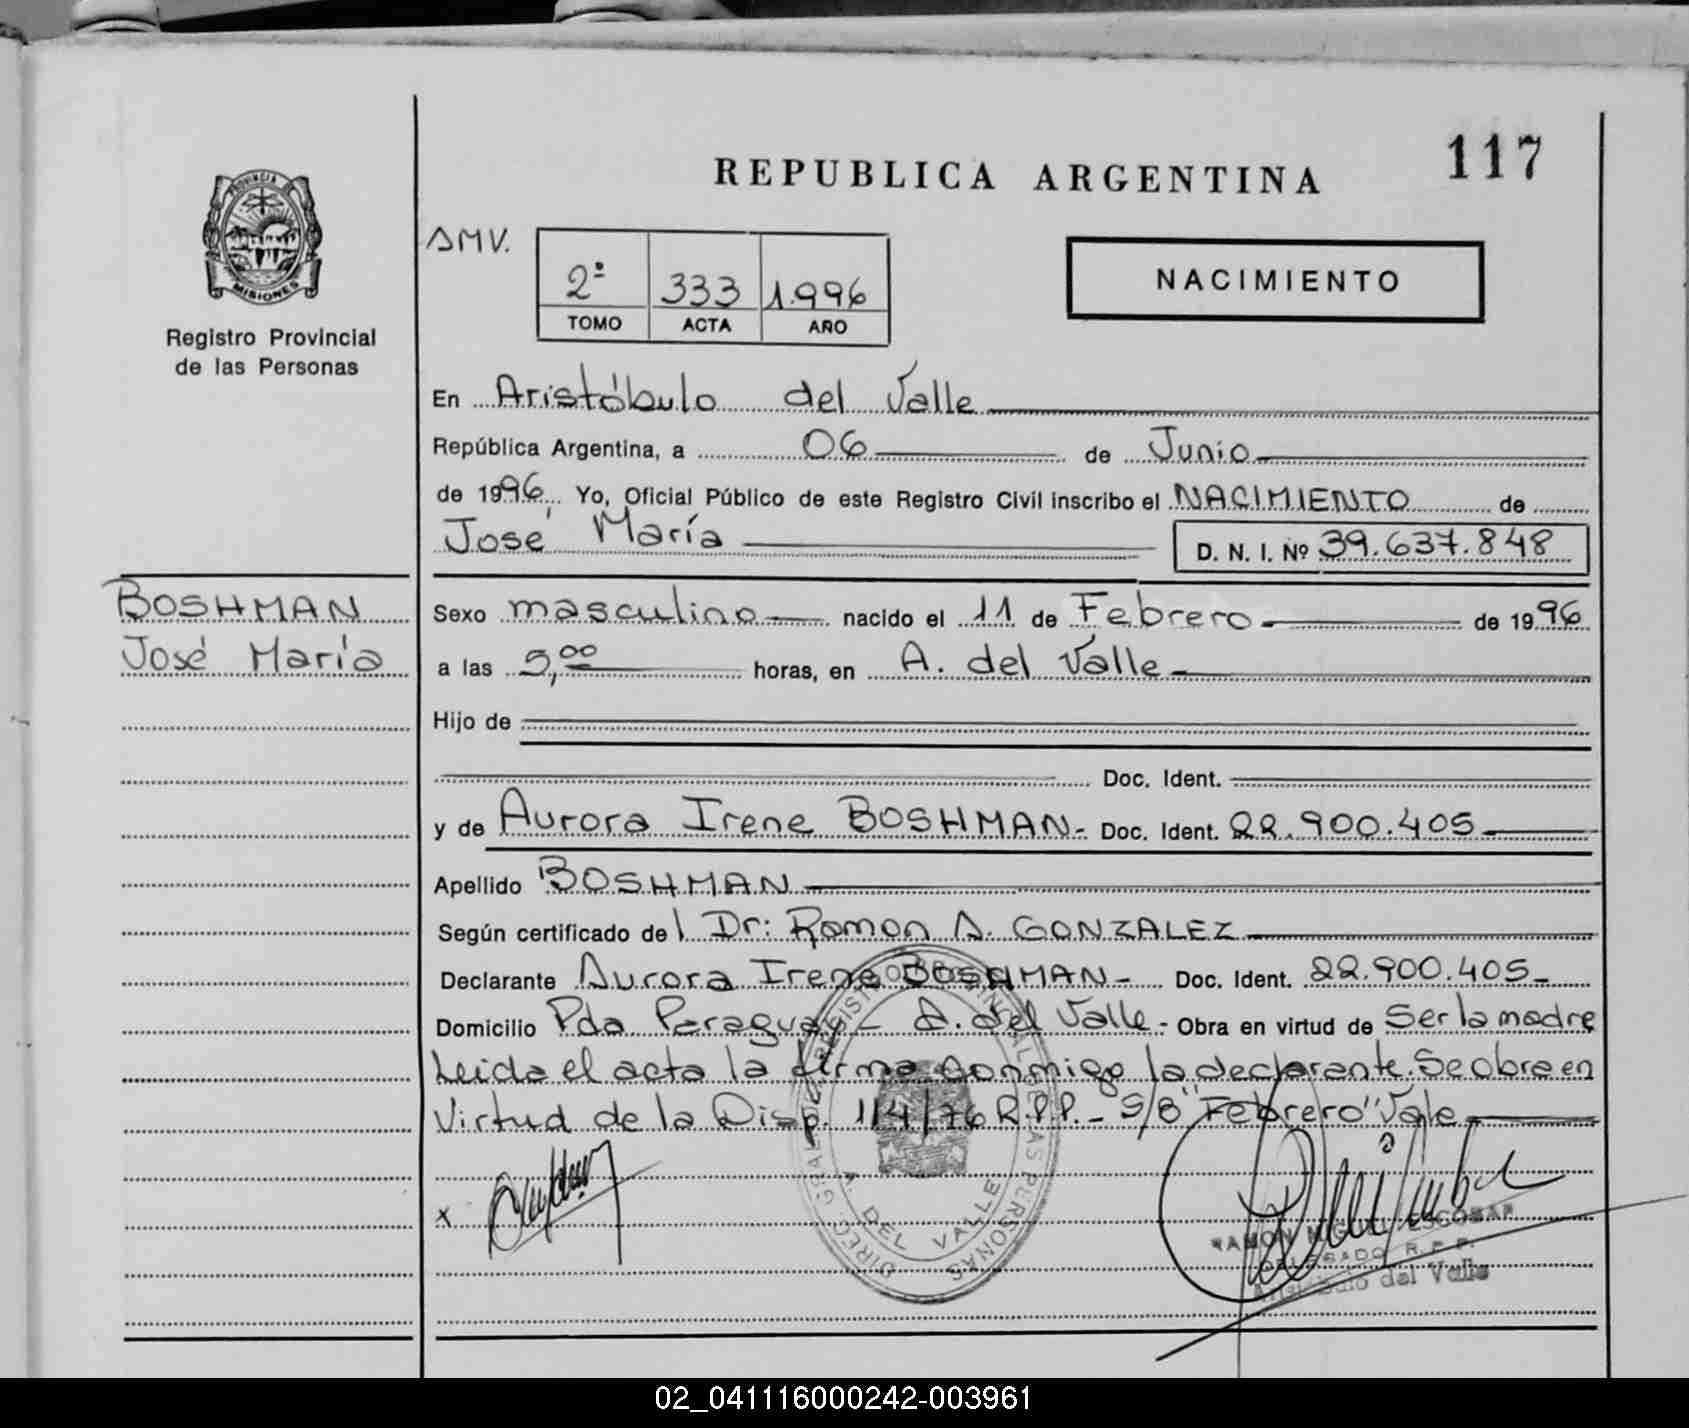 REPUBLICA ARGENTINA
117
PROVINCIA DE
MISIONES
Registro Provincial
de las Personas
AMV.
2º 333 1.996
TOMO ACTA AÑO
NACIMIENTO
En Aristóbulo del Valle
República Argentina, a 06 de Junio
de 1996 Yo, Oficial Público de este Registro Civil inscribo el NACIMIENTO de
José María D. N. I. Nº 39.637.848
BOSHMAN
José María
Sexo masculino nacido el 11 de Febrero de 1996
a las 5,00 horas, en A. del Valle
Hijo de
Doc. Ident.
y de Aurora Irene BOSHMAN- Doc. Ident. 22.900.405
Apellido BOSHMAN
Según certificado del Dr: Ramon A. GONZALEZ
Declarante Aurora Irene BOSHMAN- Doc. Ident. 22.900.405-
Domicilio Pda Paraguay- A. del Valle- Obra en virtud de Ser la madre
Leida el acta la firma conmigo la declarante. Se obra en
Virtud de la Disp. 1/4/76 R.P.P.- S/B "Febrero" Vale
x
A. DEL VALLE
RAMON MIGUEL ESCOBAR
DELEGADO R. P. P.
Aristóbulo del Valle
02_041116000242-003961